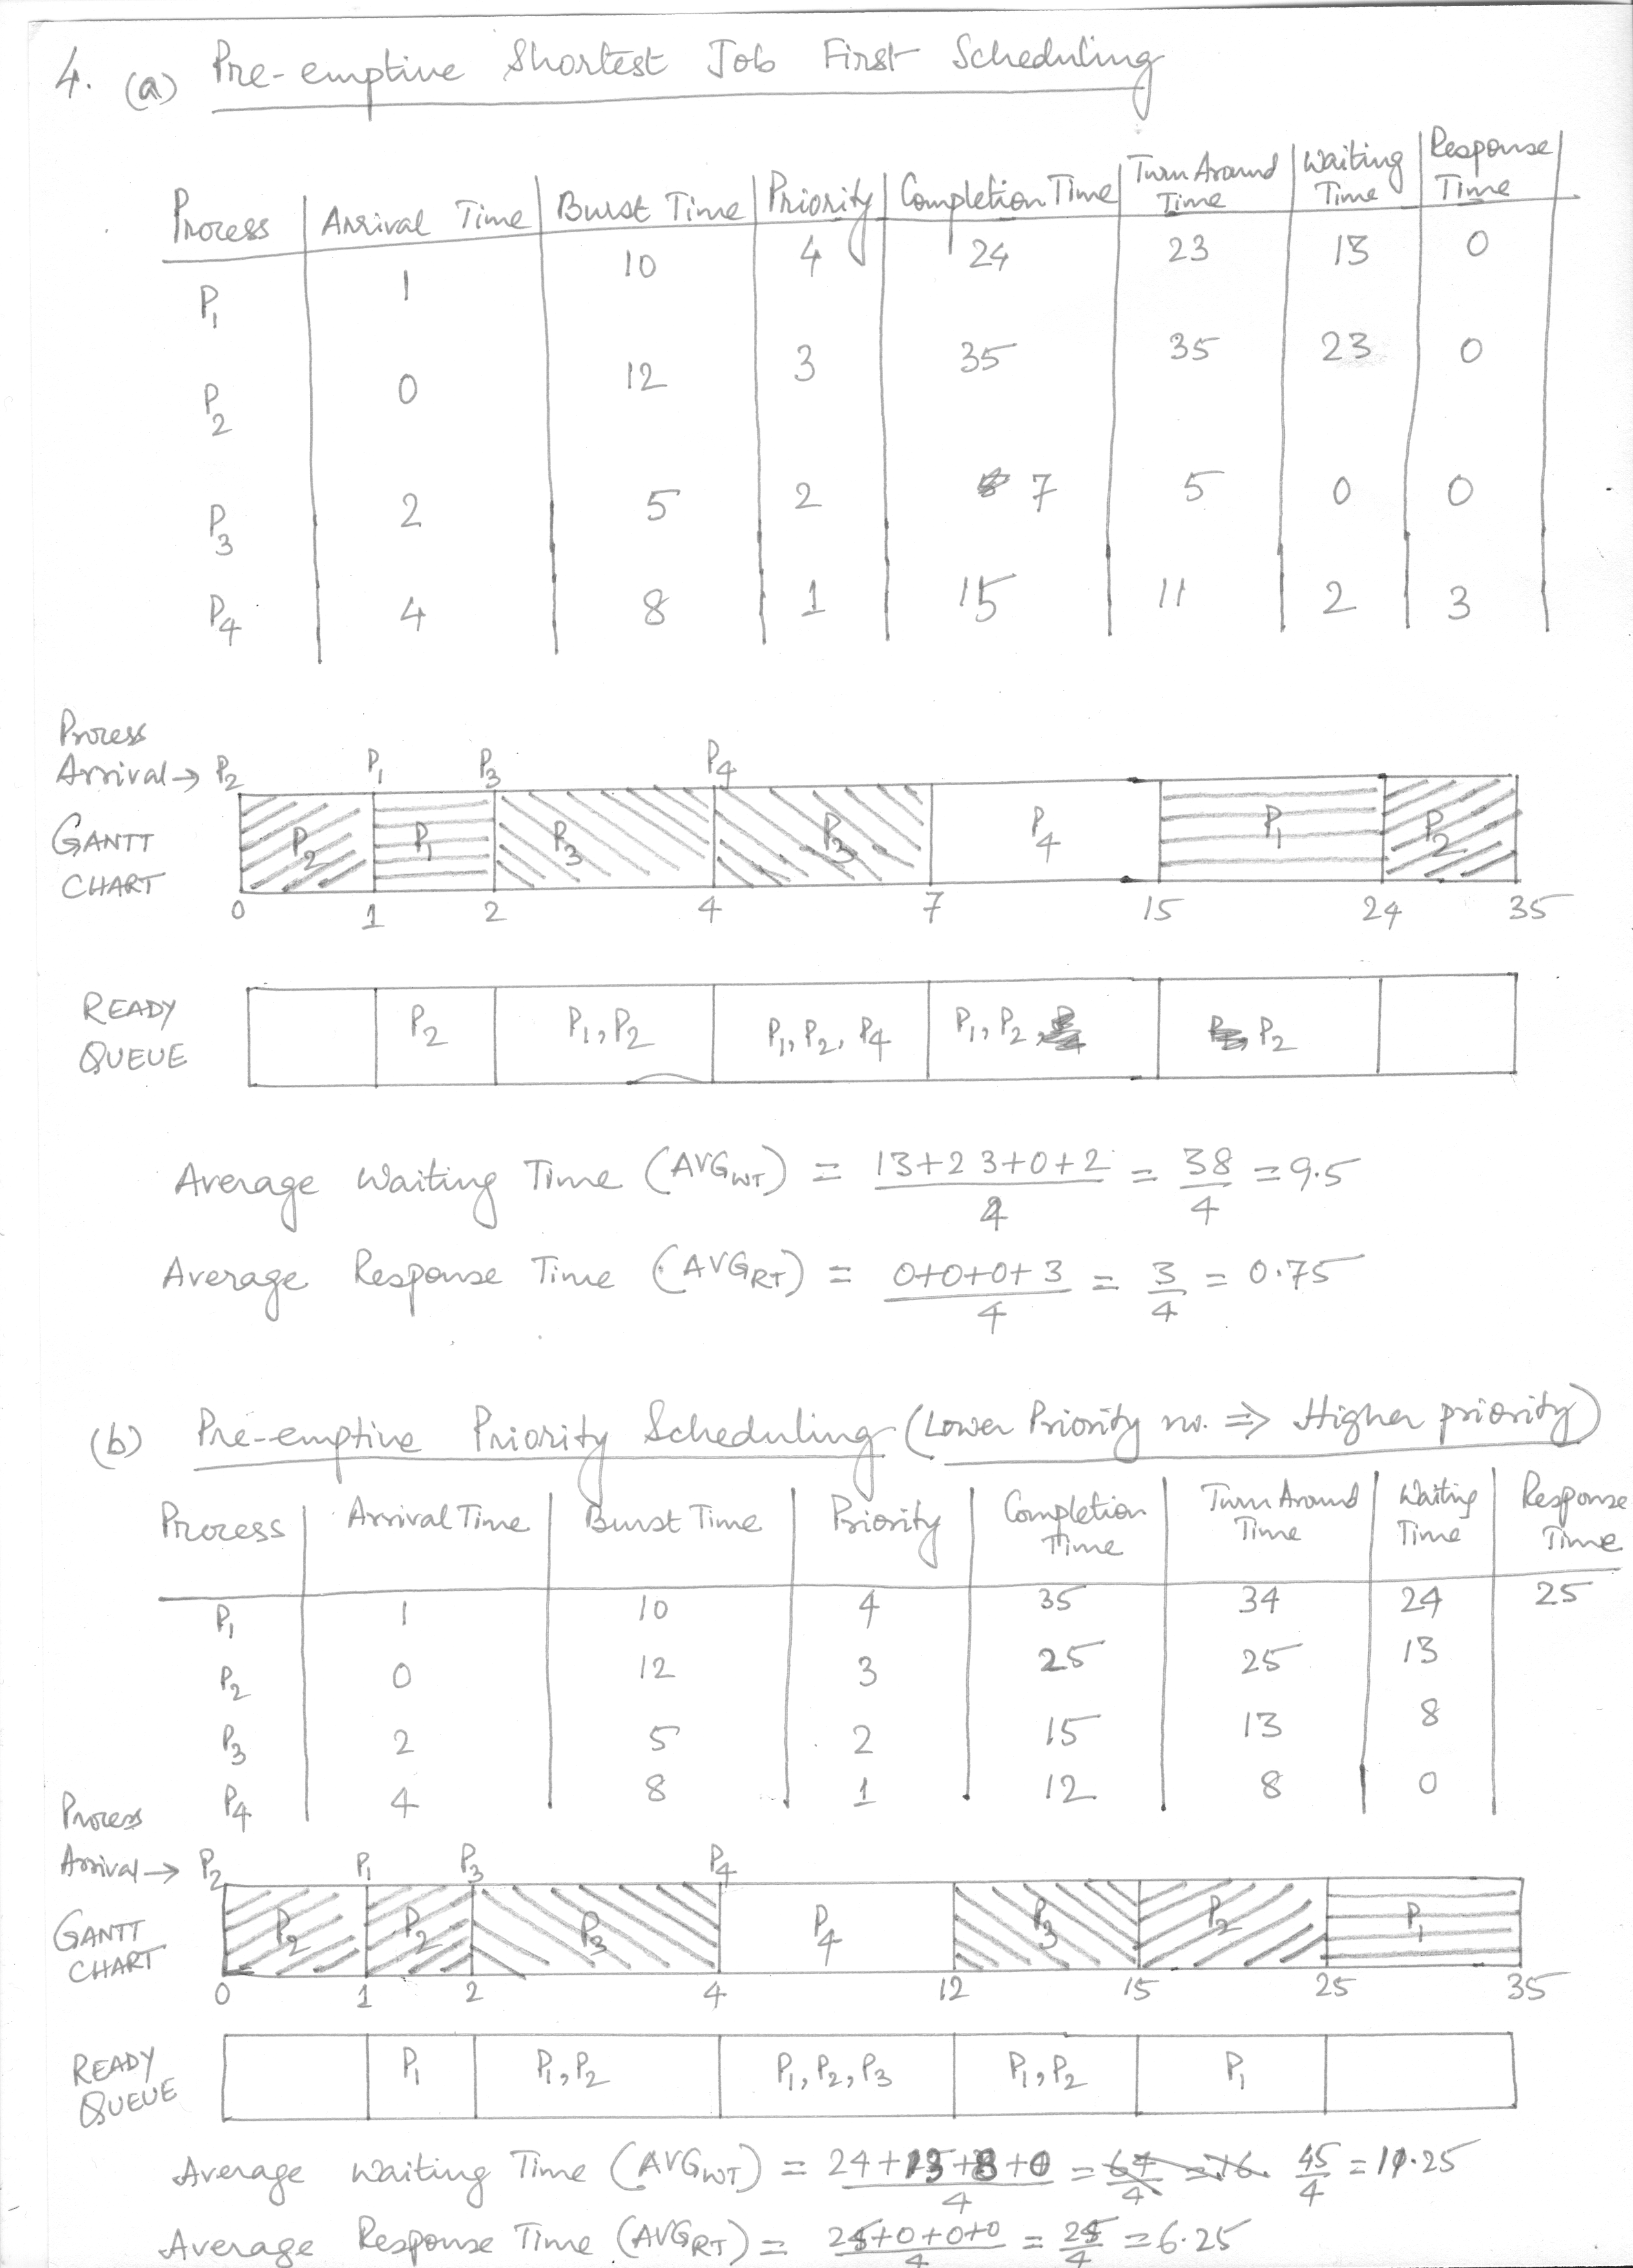 4. (a) Pre-emptive Shortest Job First Scheduling
Process | Arrival Time | Burst Time | Priority | Completion Time | Turn Around Time | Waiting Time | Response Time
P1 1 10 4 24 23 13 0
P2 0 12 3 35 35 23 0
P3 2 5 2 7 5 0 0
P4 4 8 1 15 11 2 3
Process
Arrival → P2 P1 P3 P4
GANTT CHART P2 P1 P3 P3 P4 P1 P2
0 1 2 4 7 15 24 35
READY QUEUE P2 P1, P2 P1, P2, P4 P1, P2 P2
Average Waiting Time (AVGWT) = 13+23+0+2/4 = 38/4 = 9.5
Average Response Time (AVGRT) = 0+0+0+3/4 = 3/4 = 0.75
(b) Pre-emptive Priority Scheduling (Lower Priority no. ⇒ Higher priority)
Process | Arrival Time | Burst Time | Priority | Completion Time | Turn Around Time | Waiting Time | Response Time
P1 1 10 4 35 34 24 25
P2 0 12 3 25 25 13
P3 2 5 2 15 13 8
P4 4 8 1 12 8 0
Process
Arrival → P2 P1 P3 P4
GANTT CHART P2 P2 P3 P4 P3 P2 P1
0 1 2 4 12 15 25 35
READY QUEUE P1 P1, P2 P1, P2, P3 P1, P2 P1
Average Waiting Time (AVGWT) = 24+13+8+0/4 = 45/4 = 11.25
Average Response Time (AVGRT) = 25+0+0+0/4 = 25/4 = 6.25